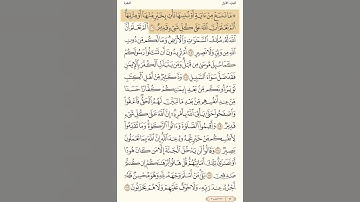 الجزء الأول البقرة
۞ مَا نَنسَخْ مِنْ ءَايَةٍ أَوْ نُنسِهَا نَأْتِ بِخَيْرٍ مِّنْهَآ أَوْ مِثْلِهَآ
أَلَمْ تَعْلَمْ أَنَّ ٱللَّهَ عَلَىٰ كُلِّ شَىْءٍ قَدِيرٌ ١٠٦ أَلَمْ تَعْلَمْ أَنَّ
ٱللَّهَ لَهُۥ مُلْكُ ٱلسَّمَٰوَٰتِ وَٱلْأَرْضِ وَمَا لَكُم مِّن دُونِ
ٱللَّهِ مِن وَلِىٍّ وَلَا نَصِيرٍ ١٠٧ أَمْ تُرِيدُونَ أَن تَسْـَٔلُوا۟ رَسُولَكُمْ
كَمَا سُئِلَ مُوسَىٰ مِن قَبْلُ وَمَن يَتَبَدَّلِ ٱلْكُفْرَ بِٱلْإِيمَٰنِ
فَقَدْ ضَلَّ سَوَآءَ ٱلسَّبِيلِ ١٠٨ وَدَّ كَثِيرٌ مِّنْ أَهْلِ ٱلْكِتَٰبِ
لَوْ يَرُدُّونَكُم مِّنۢ بَعْدِ إِيمَٰنِكُمْ كُفَّارًا حَسَدًا
مِّنْ عِندِ أَنفُسِهِم مِّنۢ بَعْدِ مَا تَبَيَّنَ لَهُمُ ٱلْحَقُّ فَٱعْفُوا۟
وَٱصْفَحُوا۟ حَتَّىٰ يَأْتِىَ ٱللَّهُ بِأَمْرِهِۦٓ إِنَّ ٱللَّهَ عَلَىٰ كُلِّ شَىْءٍ
قَدِيرٌ ١٠٩ وَأَقِيمُوا۟ ٱلصَّلَوٰةَ وَءَاتُوا۟ ٱلزَّكَوٰةَ وَمَا تُقَدِّمُوا۟
لِأَنفُسِكُم مِّنْ خَيْرٍ تَجِدُوهُ عِندَ ٱللَّهِ إِنَّ ٱللَّهَ بِمَا تَعْمَلُونَ
بَصِيرٌ ١١٠ وَقَالُوا۟ لَن يَدْخُلَ ٱلْجَنَّةَ إِلَّا مَن كَانَ هُودًا
أَوْ نَصَٰرَىٰ تِلْكَ أَمَانِيُّهُمْ قُلْ هَاتُوا۟ بُرْهَٰنَكُمْ إِن كُنتُمْ
صَٰدِقِينَ ١١١ بَلَىٰ مَنْ أَسْلَمَ وَجْهَهُۥ لِلَّهِ وَهُوَ مُحْسِنٌ فَلَهُۥٓ
أَجْرُهُۥ عِندَ رَبِّهِۦ وَلَا خَوْفٌ عَلَيْهِمْ وَلَا هُمْ يَحْزَنُونَ ١١٢